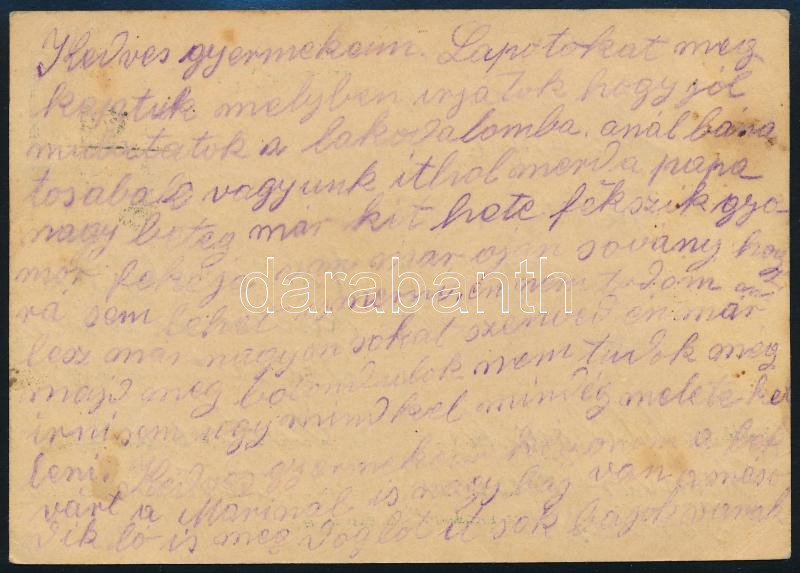 Kedves gyermekeim. Lapotokat meg
kaptuk melyben irjátok hogy jól
mulattatok a lakodalomba. anál bána
tosabak vagyunk ithol merd a papa
nagy beteg már két hete fekszik gyo
mor fekéja van már ojan sovány hogy
rá sem lehet nem tudom mi
lesz már nagyon sokat szenved én már
majd meg bolondulok nem tudok meg
irni sem ugy mind kel mindég melete kel
leni. Kedves gyermekem köszönöm a
várt a Marinál is nagy baj van a máso
dik ló is meg döglöt it sok bajok vanak
darabanth